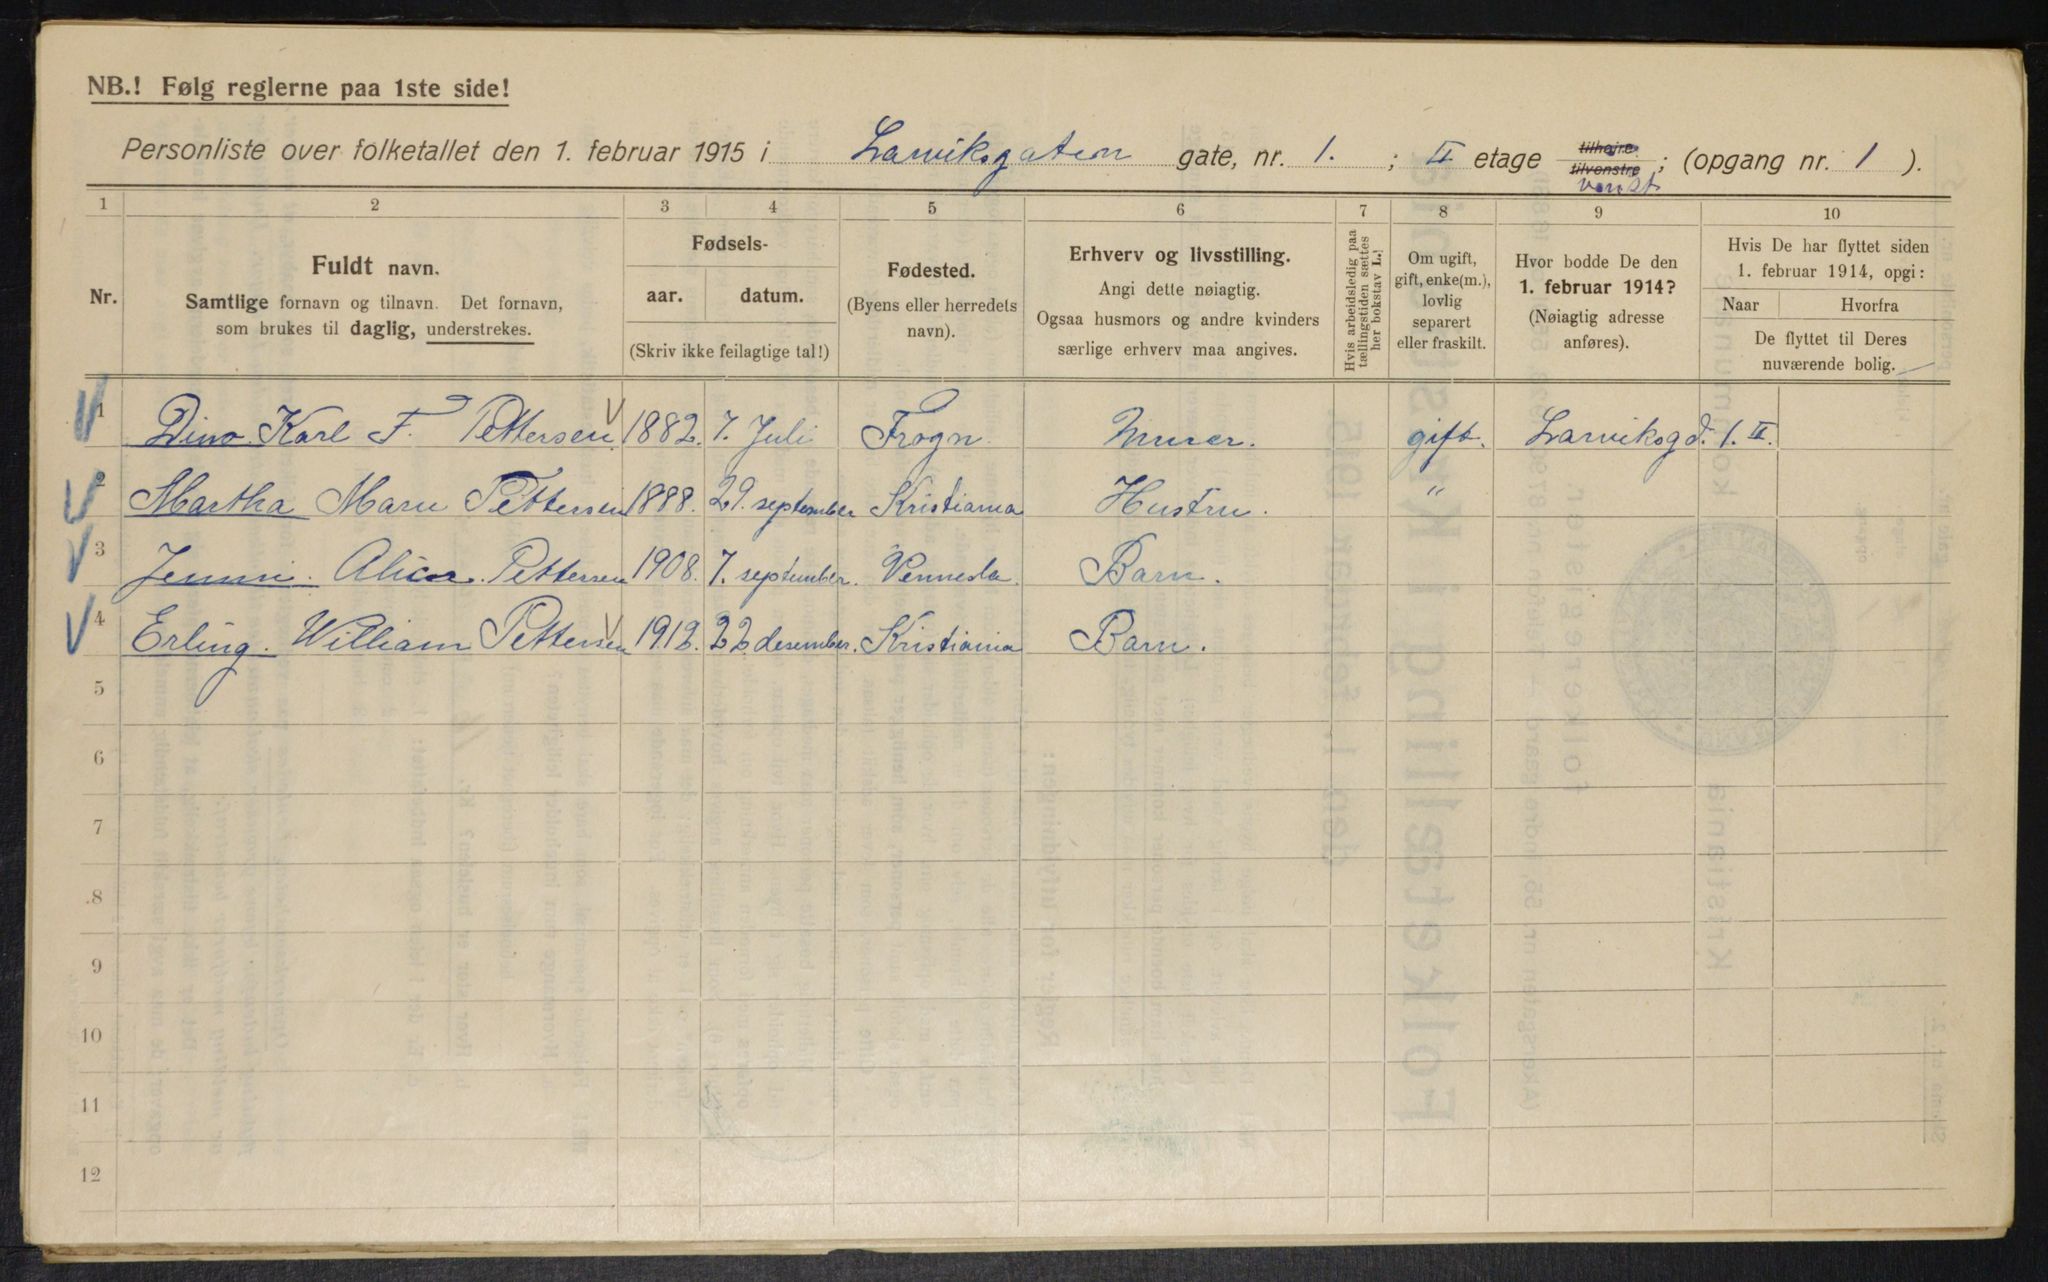 NB.! Følg reglerne paa 1ste side!
Personliste over folketallet den 1. februar 1915 i Larviksgaten gate, nr. 1. ; II etage tilhøjre tilvenstre ; (opgang nr. 1 ).
1 2 3 4 5 6 7 8 9 10
Nr.
Fuldt navn.
Samtlige fornavn og tilnavn. Det fornavn,
som brukes til daglig, understrekes.
Fødsels-
aar. datum.
(Skriv ikke feilagtige tal!)
Fødested.
(Byens eller herredets
navn).
Erhverv og livsstilling.
Angi dette nøiagtig.
Ogsaa husmors og andre kvinders
særlige erhverv maa angives.
Hvis arbeidsledig paa
tællingstiden sættes
her bokstav L.!
Om ugift,
gift, enke(m.),
lovlig
separert
eller fraskilt.
Hvor bodde De den
1. februar 1914?
(Nøiagtig adresse
anføres).
Hvis De har flyttet siden
1. februar 1914, opgi:
Naar Hvorfra
De flyttet til Deres
nuværende bolig.
1 Karl F. Pettersen 1882. 7. Juli Frogn. Murer. gift. Larviksgd. 1. II.
2 Martha Marie Pettersen 1888. 29. september Kristiania Hustru. "
3 Jenni. Alice. Pettersen 1908. 7. september. Vennesla. Barn.
4 Erling. William Pettersen 1912. 22 desember. Kristiania Barn.
5
6
7
8
9
10
11
12